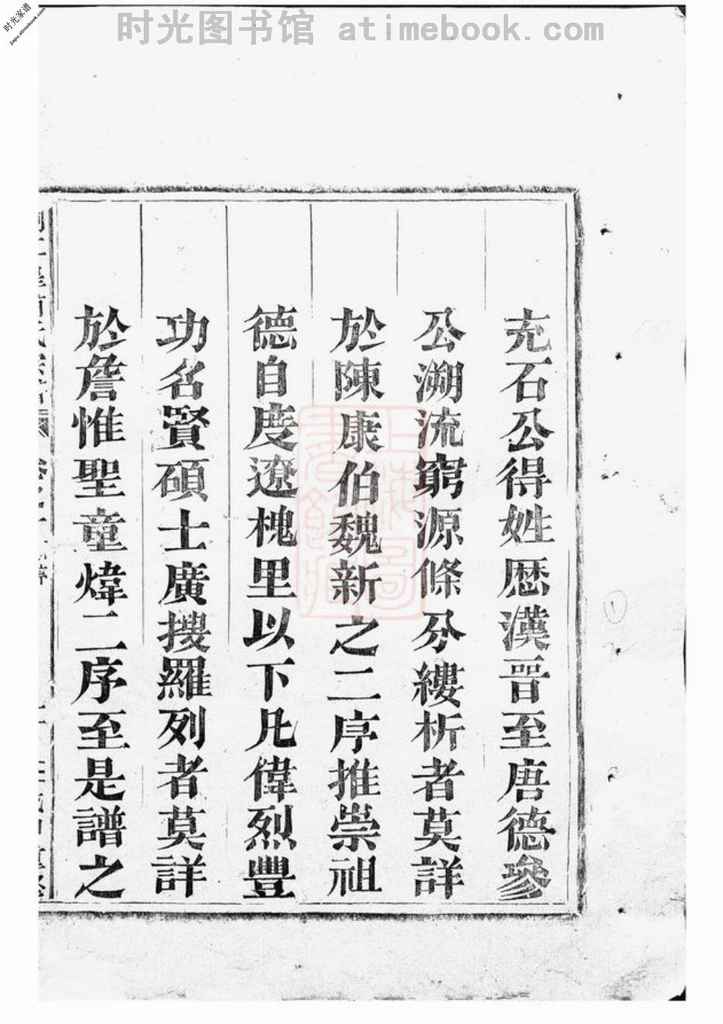 时光图书馆 atimebook.com
时光家谱
充石公得姓歷漢晋至唐德參
公溯流窮源條分縷析者莫詳
於陳康伯魏新之二序推崇祖
德自度遼槐里以下凡偉烈豐
功名賢碩士廣搜羅列者莫詳
於詹惟聖童煒二序至是譜之